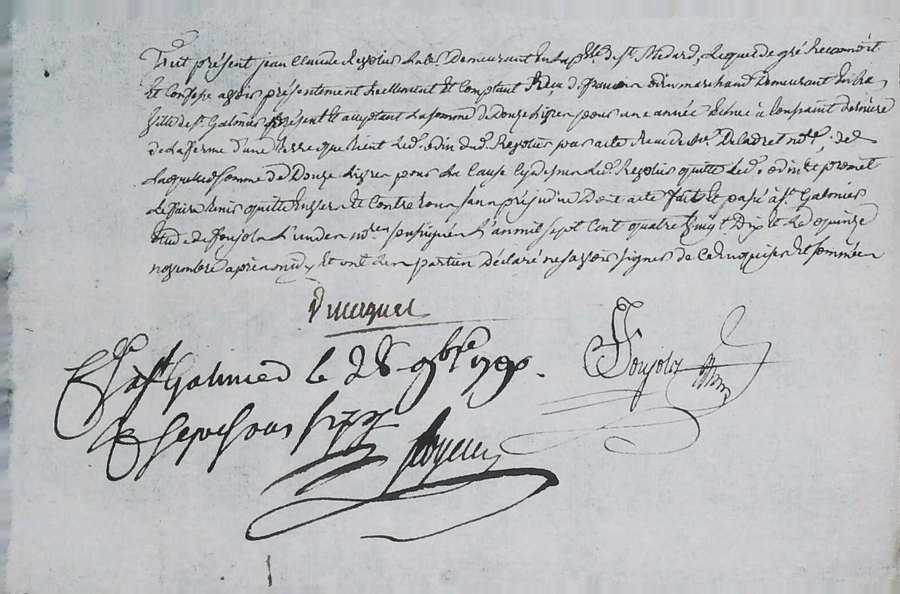 fut présent jean Claude Reynus Lab.r Demeurant En La p.sse de S.t Médard, Lequel de gré Reconnoit
Et Confesse avoir présentement Reellement Et Comptant Reçu de odin marchand Demeurant En la
ville de S.t Galmier présent Et acceptant La somme de Douze Livres pour une année Echue à la derniere
de La ferme d'une Terre que Tient led. odin dud. par acte Reçu de M.e n.re, de
Laquelle somme de Douze Livres pour La Cause Cydessus Led. quitte led. odin Et promet
Le faire Tenir quitte Envers Et Contre Tous sans préjudice Dont acte fait Et passé à S.t Galmier
étude de Soujolx L'un des n.res soussignés L'an mil sept Cent quatre Vingt Dix Et Le quinze
novembre après midy Et ont Les parties Déclaré ne savoir signer de Ce Enquises Et sommées
C.lé à S.t Galmier le 28 9bre 1790.
Reçu
Soujolx